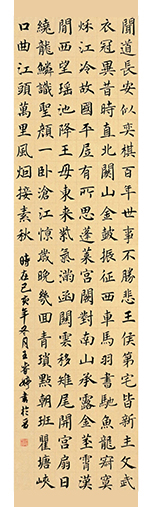 聞道長安似奕棋百年世事不勝悲王侯第宅皆新主文武
衣冠異昔時直北關山金鼓振征西車馬羽書馳魚龍寂寞
秋江冷故國平居有所思蓬萊宮闕對南山承露金莖霄漢
間西望瑤池降王母東來紫氣滿函關雲移雉尾開宮扇日
繞龍鱗識聖顏一卧滄江驚歲晚幾回青瑣點朝班瞿塘峽
口曲江頭萬里風烟接素秋 時在己亥年冬月王書於